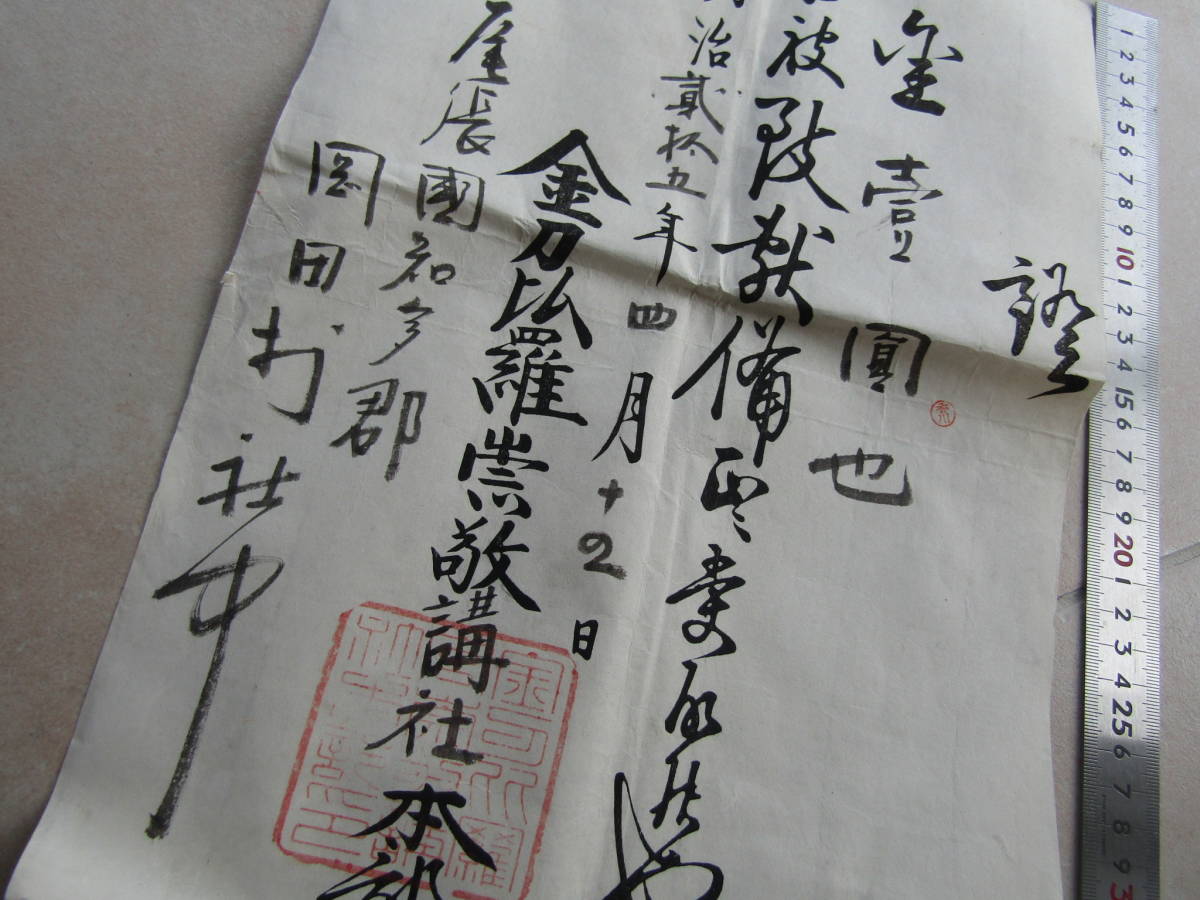 證
金壹圓也
被致献備正ニ受納候也
治貳拾五年四月十二日
金刀比羅崇敬講社本部
尾張國知多郡
岡田村
社中
1 2 3 4 5 6 7 8 9 10 1 2 3 4 15 6 7 8 9 20 1 2 3 4 25 6 7 8 9 3